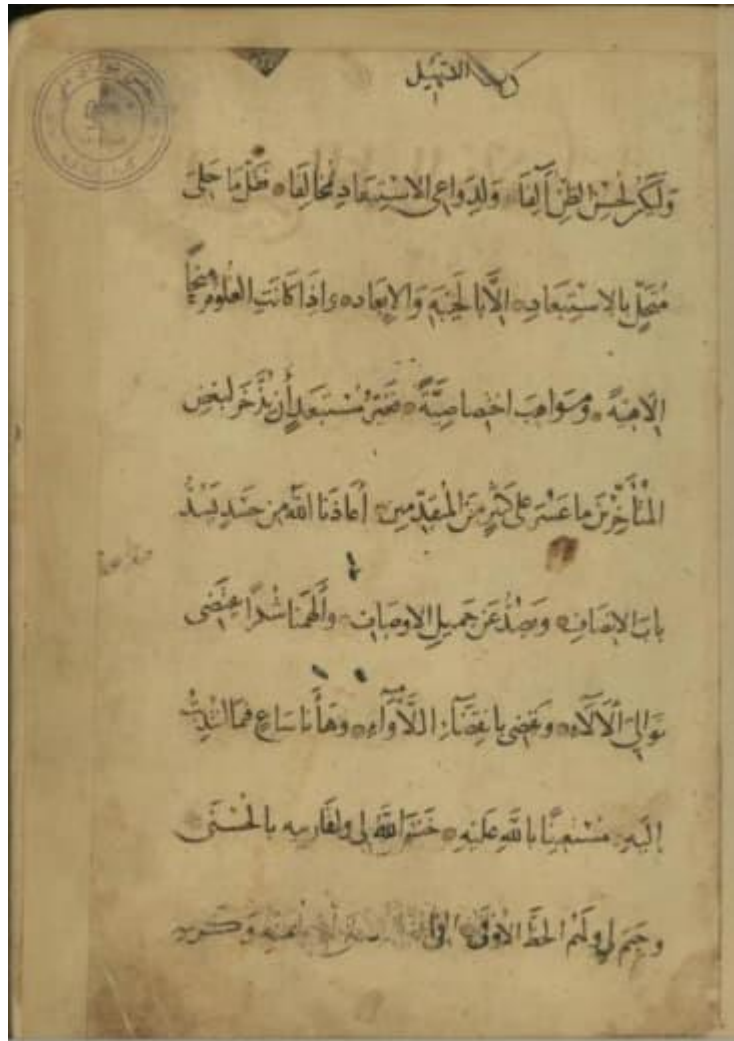 كتاب التسهيل
وَلْيَكُنْ لِحُسْنِ الظَّنِّ آلِفًا وَلِدَوَاعِي الاسْتِبْعَادِ مُخَالِفًا فَقَلَّ مَا حَلِيَ
مُتَحَلٍّ بِالاسْتِبْعَادِ إِلَّا بِالْخَيْبَةِ وَالإِبْعَادِ وَإِذَا كَانَتِ الْعُلُومُ مِنَحًا
إِلَاهِيَّةً وَمَوَاهِبَ اخْتِصَاصِيَّةً فَغَيْرُ مُسْتَبْعَدٍ أَنْ يُدَّخَرَ لِبَعْضِ
الْمُتَأَخِّرِينَ مَا عَسُرَ عَلَى كَثِيرٍ مِنَ الْمُتَقَدِّمِينَ أَعَاذَنَا اللَّهُ مِنْ حَسَدٍ يَسُدُّ
بَابَ الإِنْصَافِ وَيَصُدُّ عَنْ جَمِيلِ الأَوْصَافِ وَأَلْهَمَنَا شُكْرًا يَقْتَضِي
تَوَالِيَ الآلَاءِ وَيَقْضِي بِانْقِضَاءِ اللَّأْوَاءِ وَهَا أَنَا سَاعٍ فِيمَا انْتُدِبْتُ
إِلَيْهِ مُسْتَعِينًا بِاللَّهِ عَلَيْهِ خَتَمَ اللَّهُ لِي وَلِقَارِئِيهِ بِالْحُسْنَى
وَحَتَمَ لِي وَلَهُمُ الْحَظَّ الأَوْفَى بمنه وَكَرَمِهِ